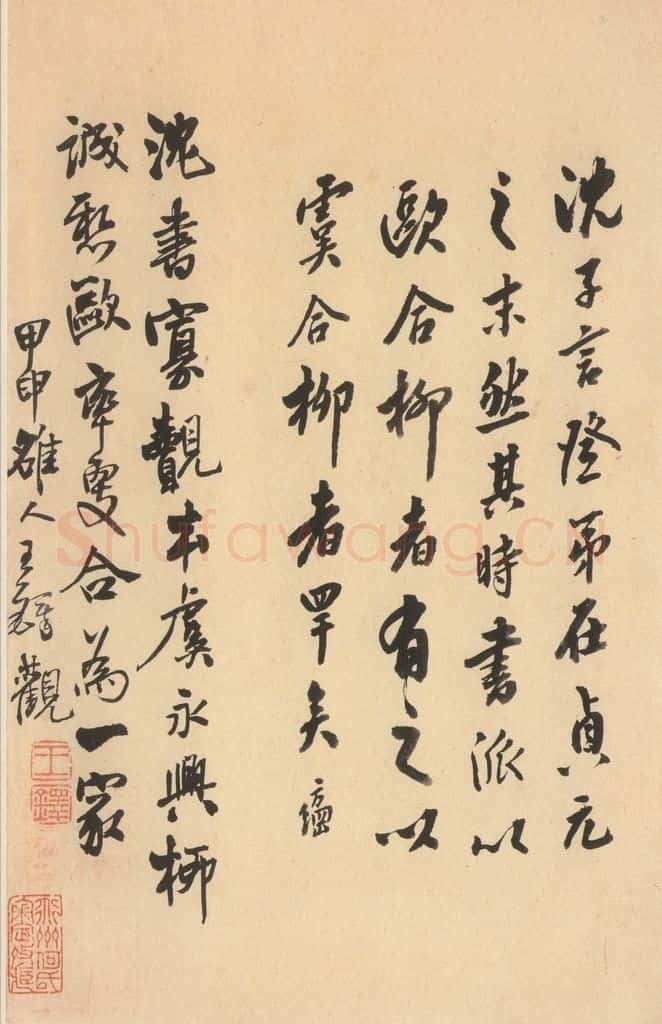 沈子言登第在貞元
之末然其時書派以
歐合柳者有之以
虞合柳者罕矣 方綱
沈書寡覿本虞永興柳
誠懸歐率更合為一家
甲申雒人王鐸觀
王鐸
Shufawang.CN